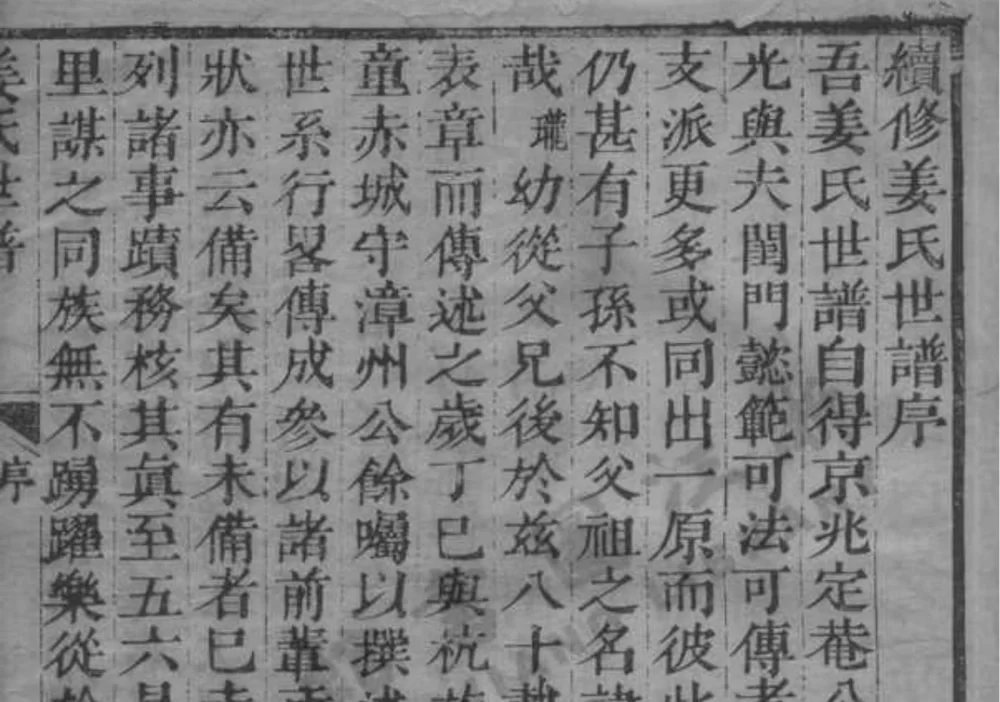 續修姜氏世譜序
吾姜氏世譜自得京兆定菴公
光與夫閨門懿範可法可傳者
支派更多或同出一原而彼此
仍甚有子孫不知父祖之名諱
哉瓏幼從父兄後於茲八十
表章而傳述之歲丁巳與杭
童赤城守漳州公餘囑以撰述
世系行畧傳成參以諸前輩
狀亦云備矣其有未備者巳
列諸事蹟務核其真至五六
里謀之同族無不踴躍樂從於
姜氏世譜
序